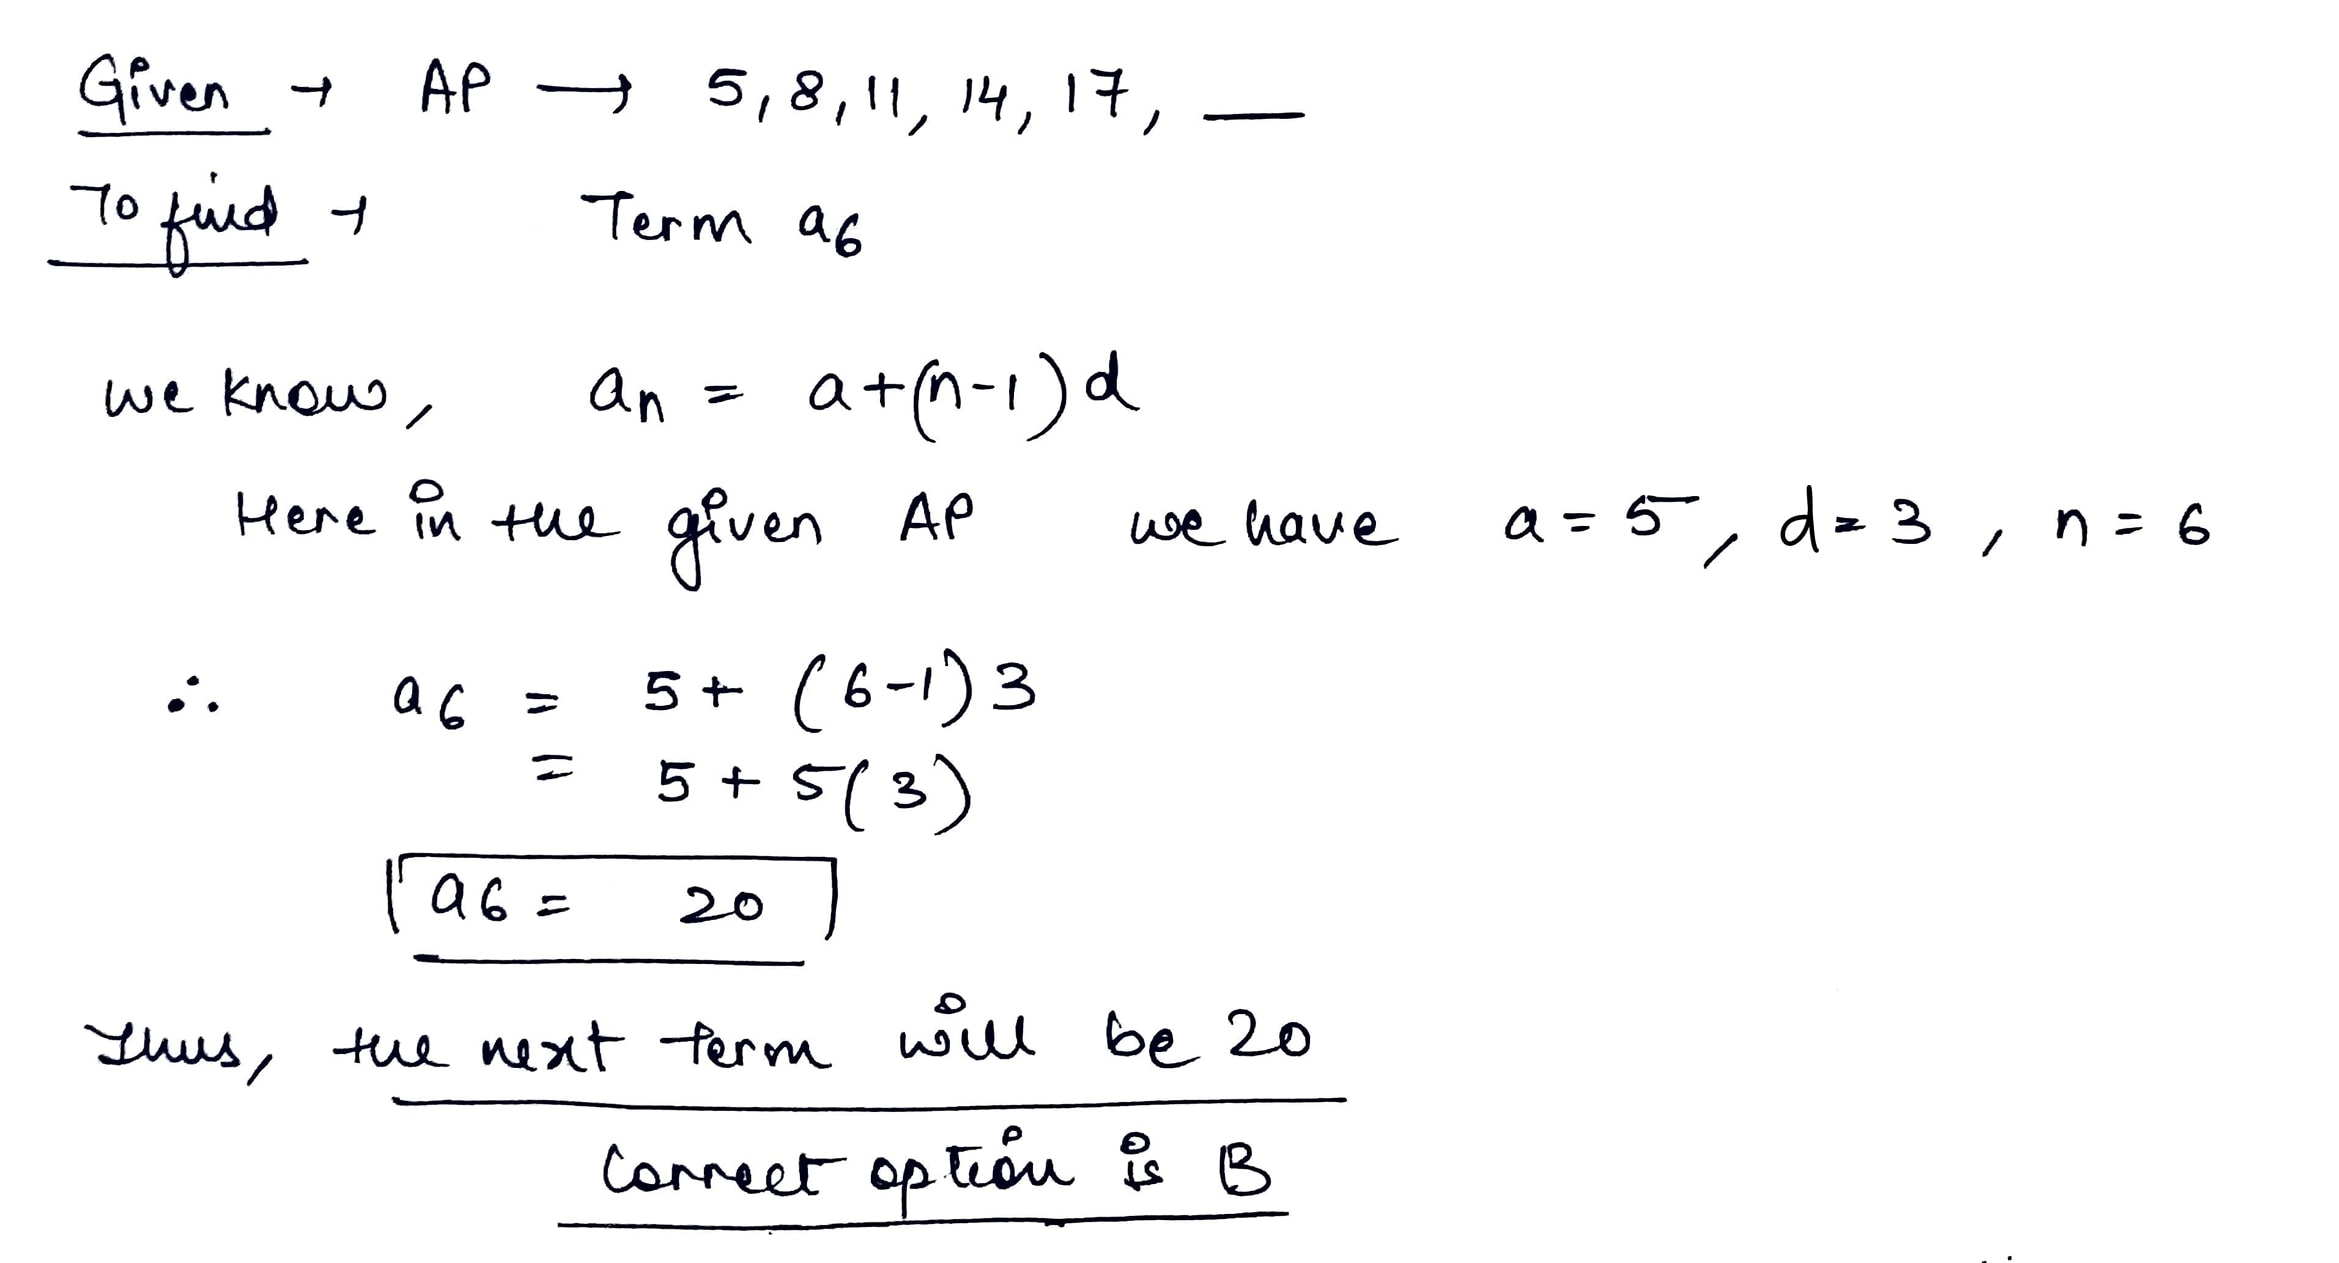 Given → AP → 5, 8, 11, 14, 17, __
To find → Term a₆
we know, aₙ = a+(n-1)d
Here in the given AP we have a = 5, d = 3, n = 6
∴ a₆ = 5+ (6-1)3
= 5 + 5(3)
a₆ = 20
Thus, the next term will be 20
Correct option is B